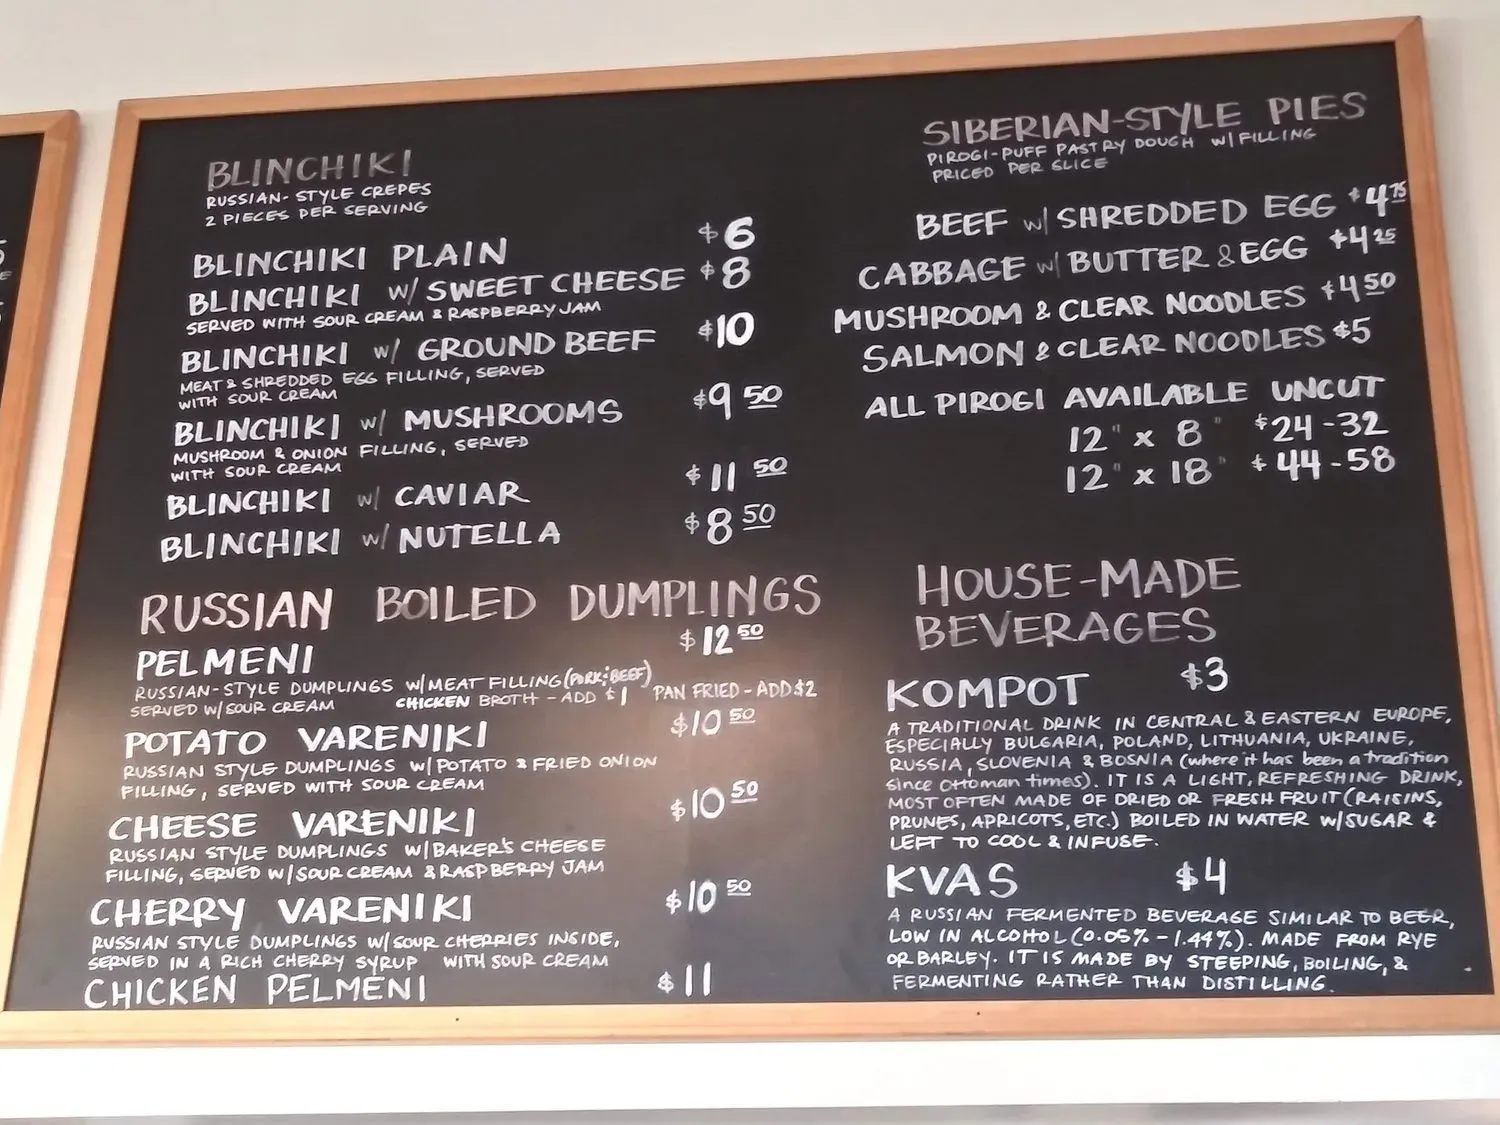 BLINCHIKI
RUSSIAN-STYLE CREPES
2 PIECES PER SERVING
BLINCHIKI PLAIN $6
BLINCHIKI w/ SWEET CHEESE $8
SERVED WITH SOUR CREAM & RASPBERRY JAM
BLINCHIKI w/ GROUND BEEF $10
MEAT & SHREDDED EGG FILLING, SERVED
WITH SOUR CREAM
BLINCHIKI w/ MUSHROOMS $9 50
MUSHROOM & ONION FILLING, SERVED
WITH SOUR CREAM
BLINCHIKI w/ CAVIAR $11 50
BLINCHIKI w/ NUTELLA $8 50
RUSSIAN BOILED DUMPLINGS
PELMENI $12 50
RUSSIAN-STYLE DUMPLINGS W/MEAT FILLING (PORK & BEEF)
SERVED W/SOUR CREAM CHICKEN BROTH - ADD $1 PAN FRIED - ADD $2
POTATO VARENIKI $10 50
RUSSIAN STYLE DUMPLINGS W/POTATO & FRIED ONION
FILLING, SERVED WITH SOUR CREAM
CHEESE VARENIKI $10 50
RUSSIAN STYLE DUMPLINGS W/BAKER'S CHEESE
FILLING, SERVED W/SOUR CREAM & RASPBERRY JAM
CHERRY VARENIKI $10 50
RUSSIAN STYLE DUMPLINGS W/SOUR CHERRIES INSIDE,
SERVED IN A RICH CHERRY SYRUP WITH SOUR CREAM
CHICKEN PELMENI $11
SIBERIAN-STYLE PIES
PIROGI-PUFF PASTRY DOUGH W/FILLING
PRICED PER SLICE
BEEF w/ SHREDDED EGG $4 75
CABBAGE w/ BUTTER & EGG $4 25
MUSHROOM & CLEAR NOODLES $4 50
SALMON & CLEAR NOODLES $5
ALL PIROGI AVAILABLE UNCUT
12" x 8" $24-32
12" x 18" $44-58
HOUSE-MADE
BEVERAGES
KOMPOT $3
A TRADITIONAL DRINK IN CENTRAL & EASTERN EUROPE,
ESPECIALLY BULGARIA, POLAND, LITHUANIA, UKRAINE,
RUSSIA, SLOVENIA & BOSNIA (where it has been a tradition
since Ottoman times). IT IS A LIGHT, REFRESHING DRINK,
MOST OFTEN MADE OF DRIED OR FRESH FRUIT (RAISINS,
PRUNES, APRICOTS, ETC.) BOILED IN WATER W/SUGAR &
LEFT TO COOL & INFUSE.
KVAS $4
A RUSSIAN FERMENTED BEVERAGE SIMILAR TO BEER,
LOW IN ALCOHOL (0.05% - 1.44%). MADE FROM RYE
OR BARLEY. IT IS MADE BY STEEPING, BOILING, &
FERMENTING RATHER THAN DISTILLING.